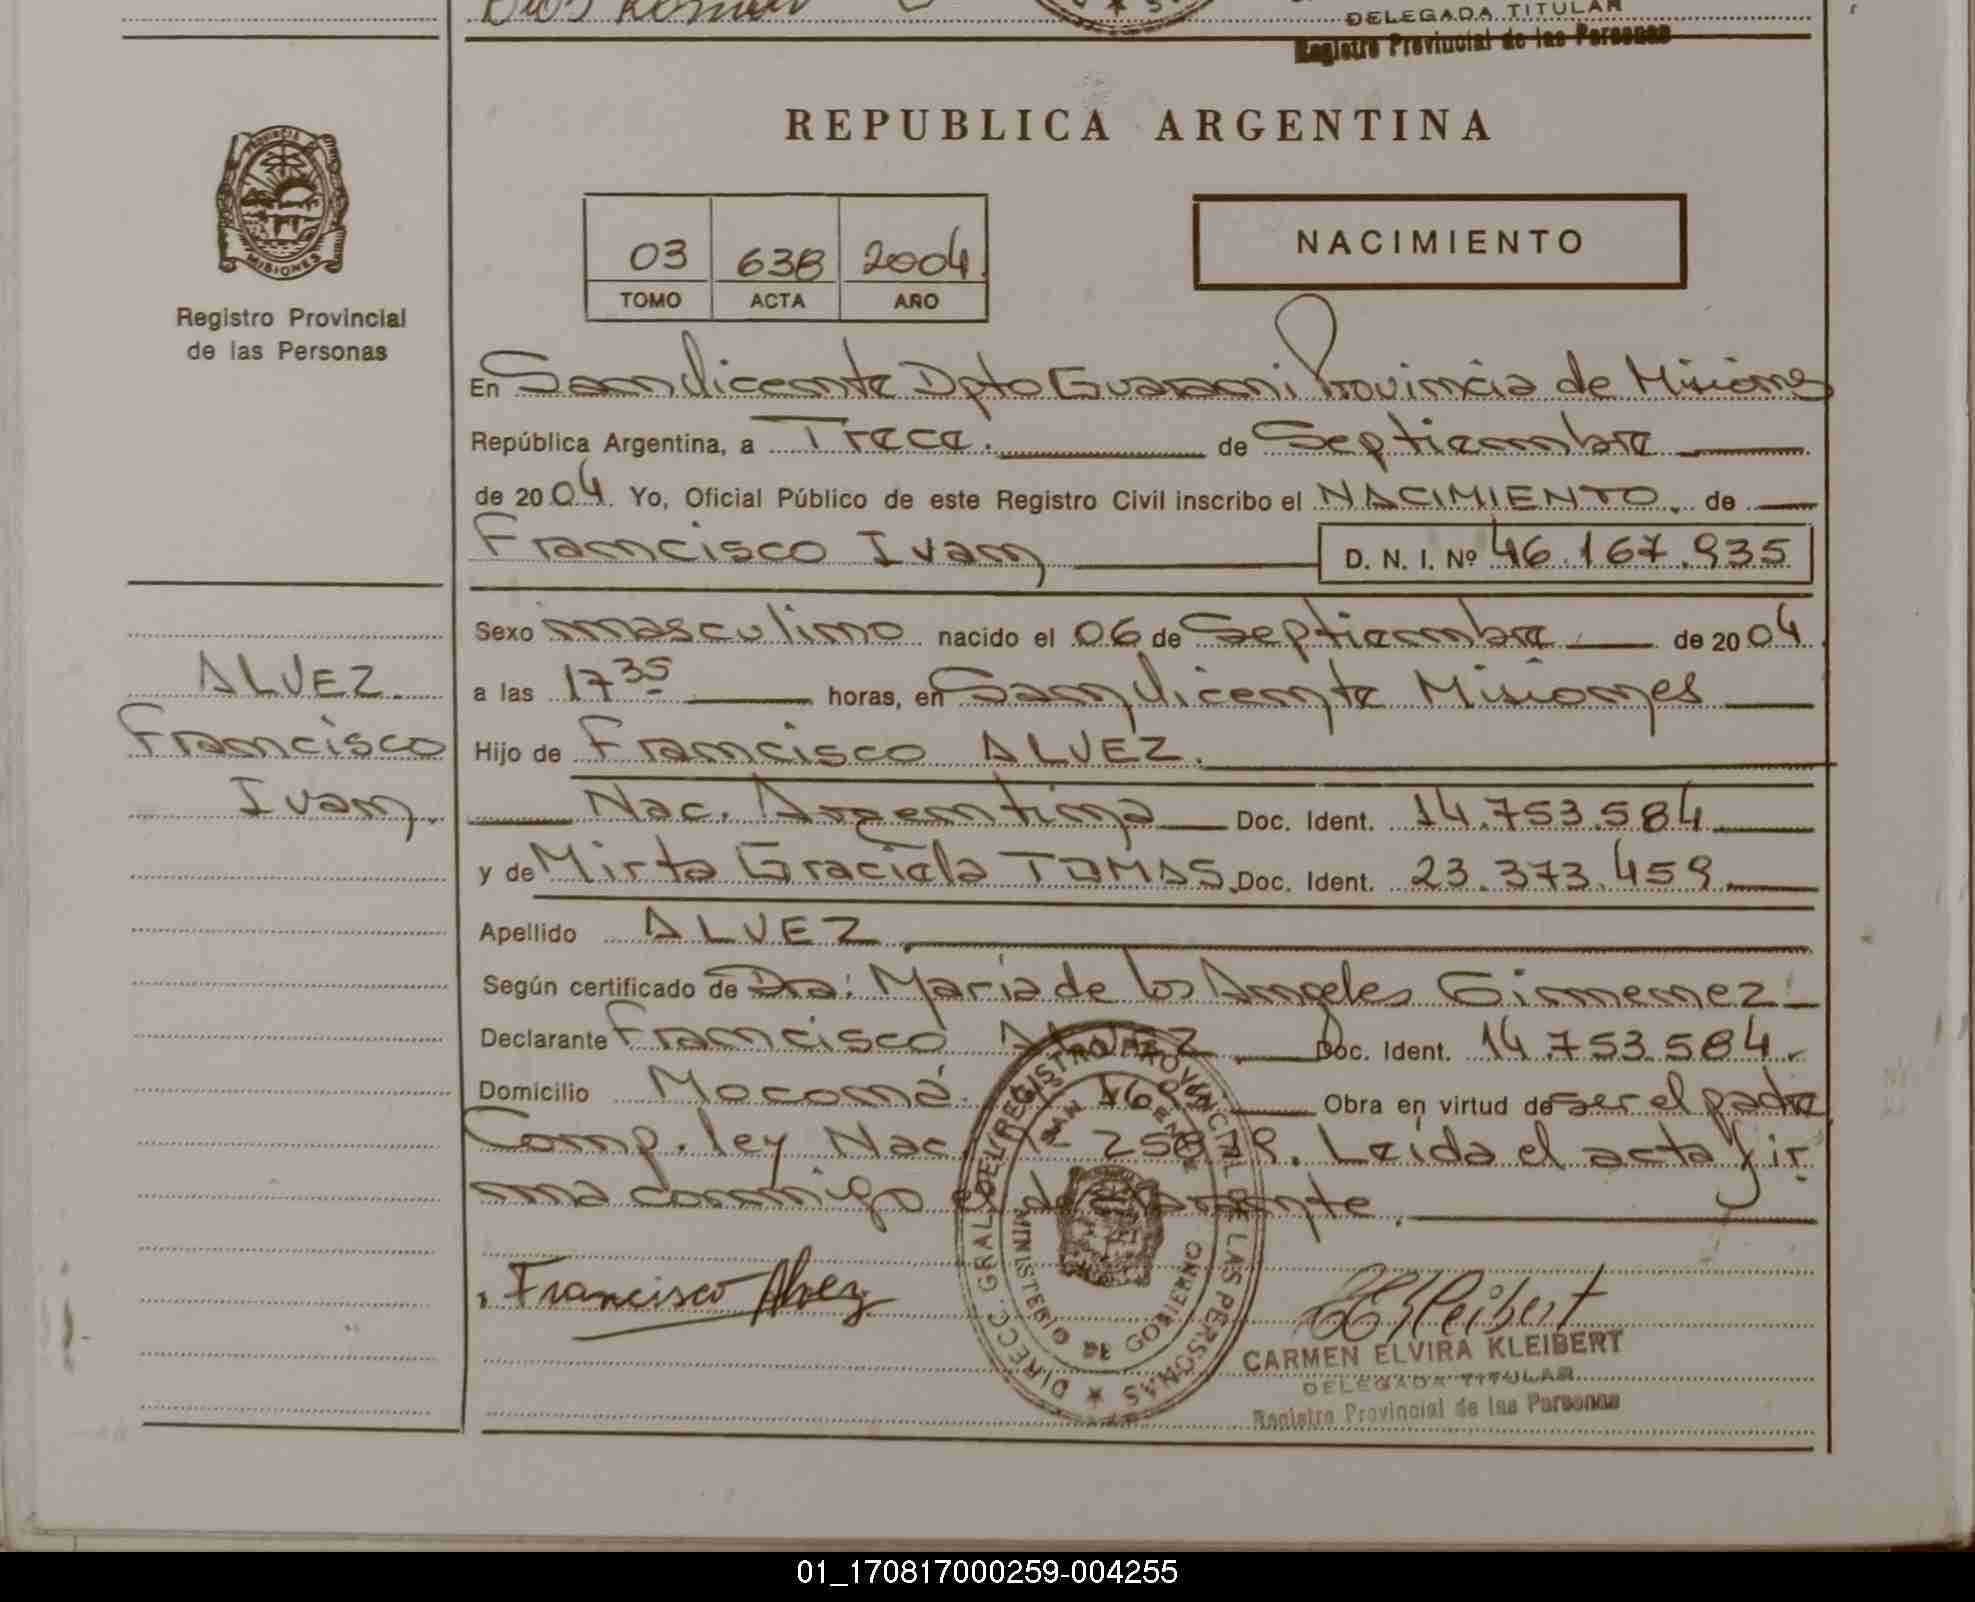 Dios Roman
DELEGADA TITULAR
Registro Provincial de las Personas
PROVINCIA DE
MISIONES
Registro Provincial
de las Personas
REPUBLICA ARGENTINA
03 638 2004
TOMO ACTA AÑO
NACIMIENTO
En San Vicente Dpto Guarani Provincia de Misiones
República Argentina, a Trece. de Septiembre
de 2004. Yo, Oficial Público de este Registro Civil inscribo el NACIMIENTO. de
Francisco Ivan D. N. I. Nº 46.167.935
Sexo masculino nacido el 06 de Septiembre de 2004.
a las 17 35 horas, en San Vicente Misiones
Hijo de Francisco ALVEZ.
Nac. Argentina Doc. Ident. 14.753.584
y de Mirta Graciela TOMAS. Doc. Ident. 23.373.459
Apellido ALVEZ
Según certificado de Dra: Maria de los Angeles Gimenez
Declarante Francisco ALVEZ Doc. Ident. 14.753.584.
Domicilio Moconá. Obra en virtud de ser el padre
Comp. ley Nac. Nº 25819. Leída el acta fir
ma conmigo el declarante.
ALVEZ
Francisco
Ivan.
Francisco Alvez
DIRECC. GRAL. DEL REGISTRO PROVINCIAL DE LAS PERSONAS
SAN VICENTE
MINISTERIO DE GOBIERNO
CEKleibert
CARMEN ELVIRA KLEIBERT
DELEGADA TITULAR
Registro Provincial de las Personas
01_170817000259-004255